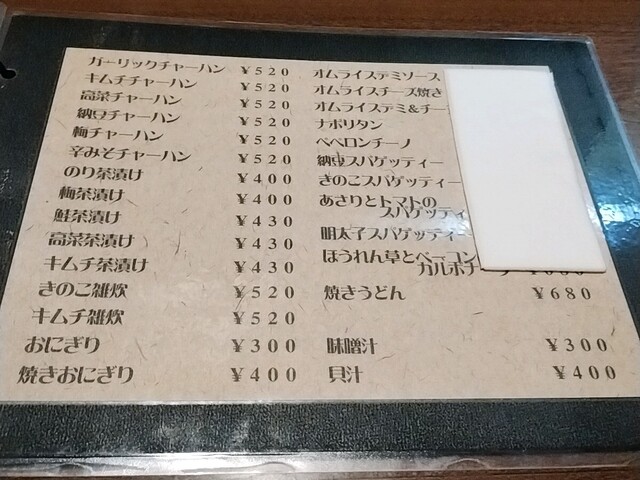 ガーリックチャーハン ￥520
キムチチャーハン ￥520
高菜チャーハン ￥520
納豆チャーハン ￥520
梅チャーハン ￥520
辛みそチャーハン ￥520
のり茶漬け ￥400
梅茶漬け ￥400
鮭茶漬け ￥430
高菜茶漬け ￥430
キムチ茶漬け ￥430
きのこ雑炊 ￥520
キムチ雑炊 ￥520
おにぎり ￥300
焼きおにぎり ￥400
オムライスデミソース
オムライスチーズ焼き
オムライスデミ&チー
ナポリタン
ペペロンチーノ
納豆スパゲッティー
きのこスパゲッティー
あさりとトマトの
スパゲッティ
明太子スパゲッティー
ほうれん草とベーコン
カルボナーラ
焼きうどん ￥680
味噌汁 ￥300
貝汁 ￥400